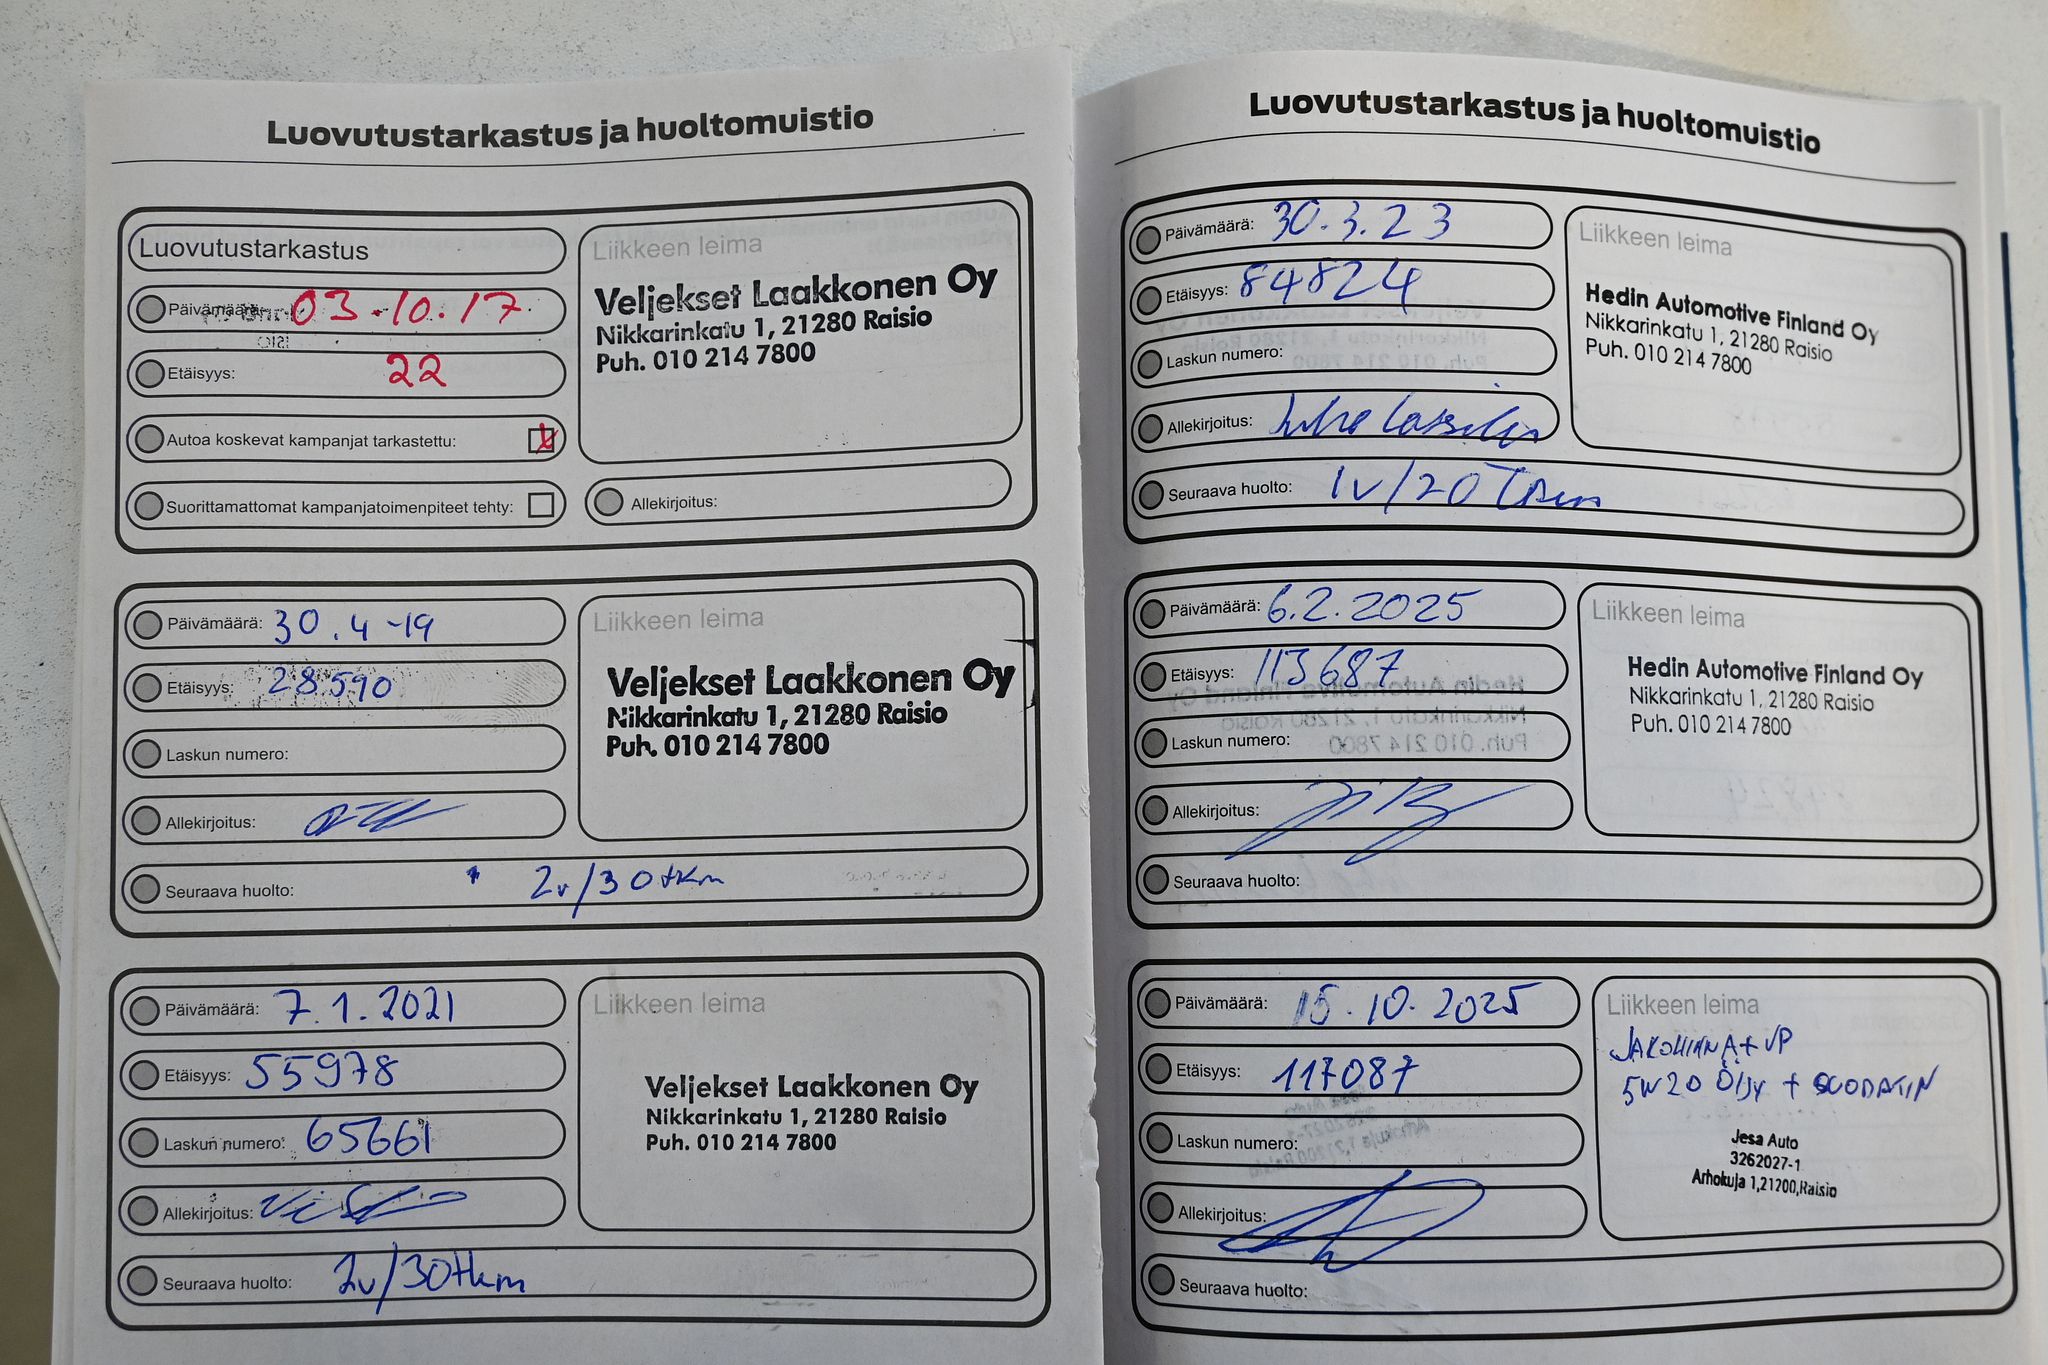 Luovutustarkastus ja huoltomuistio
Luovutustarkastus
Päivämäärä: 03.10.17
Etäisyys: 22
Autoa koskevat kampanjat tarkastettu: X
Suorittamattomat kampanjatoimenpiteet tehty:
Liikkeen leima
Veljekset Laakkonen Oy
Nikkarinkatu 1, 21280 Raisio
Puh. 010 214 7800
Allekirjoitus:
Päivämäärä: 30.4-19
Etäisyys: 28590
Laskun numero:
Allekirjoitus:
Seuraava huolto: 2v/30tkm
Liikkeen leima
Veljekset Laakkonen Oy
Nikkarinkatu 1, 21280 Raisio
Puh. 010 214 7800
Päivämäärä: 7.1.2021
Etäisyys: 55978
Laskun numero: 65661
Allekirjoitus:
Seuraava huolto: 2v/30tkm
Liikkeen leima
Veljekset Laakkonen Oy
Nikkarinkatu 1, 21280 Raisio
Puh. 010 214 7800
Luovutustarkastus ja huoltomuistio
Päivämäärä: 30.3.23
Etäisyys: 84824
Laskun numero:
Allekirjoitus:
Seuraava huolto: 1v/20
Liikkeen leima
Hedin Automotive Finland Oy
Nikkarinkatu 1, 21280 Raisio
Puh. 010 214 7800
Päivämäärä: 6.2.2025
Etäisyys: 113687
Laskun numero:
Allekirjoitus:
Seuraava huolto:
Liikkeen leima
Hedin Automotive Finland Oy
Nikkarinkatu 1, 21280 Raisio
Puh. 010 214 7800
Päivämäärä: 15.10.2025
Etäisyys: 117087
Laskun numero:
Allekirjoitus:
Seuraava huolto:
Liikkeen leima
JAKOHIHNA + VP
5W20 Öljy + SUODATIN
Jesa Auto
3262027-1
Arhokuja 1,21200,Raisio